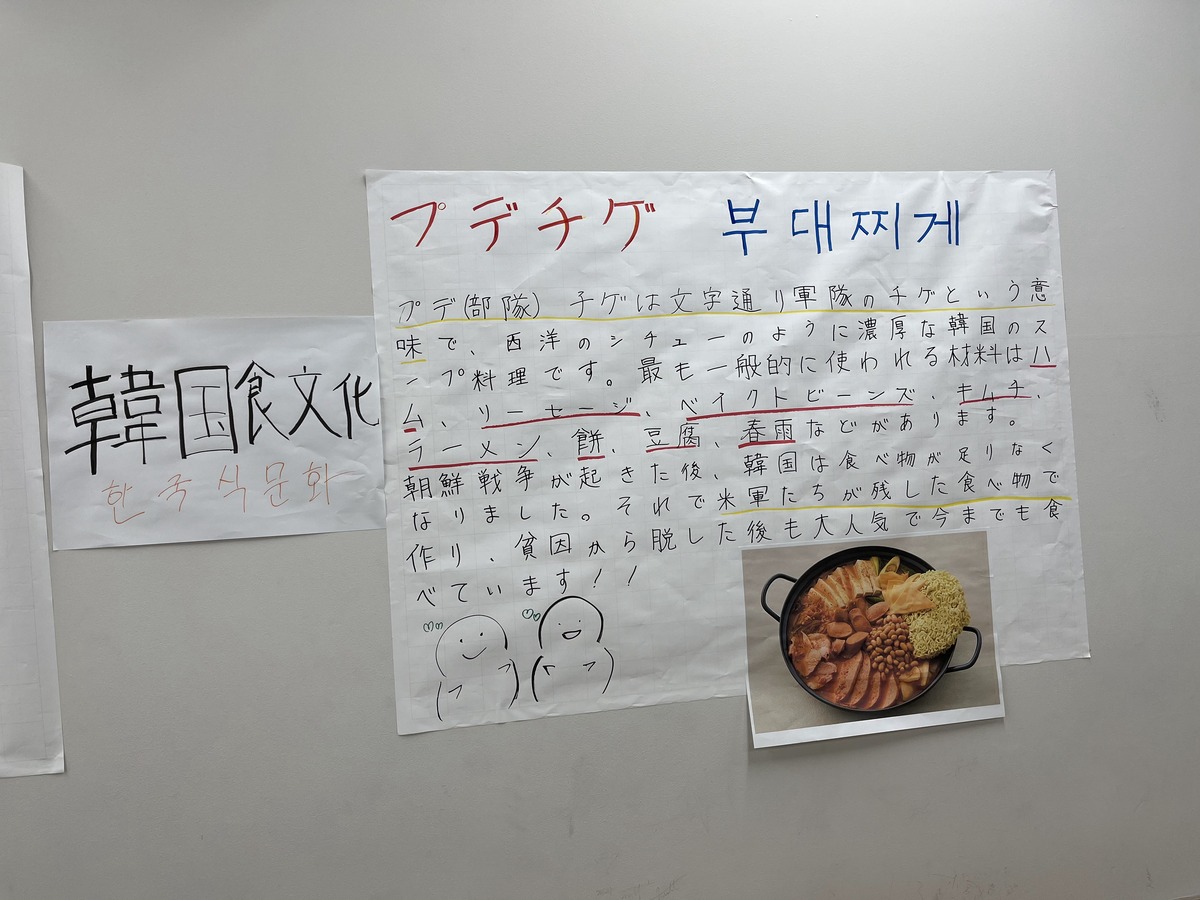 韓国食文化
한국식문화
プデチゲ 부대찌게
プデ(部隊) チゲは文字通り軍隊のチゲという意
味で、西洋のシチューのように濃厚な韓国のス
ープ料理です。最も一般的に使われる材料はハ
ム、ソーセージ、ベイクトビーンズ、キムチ、
ラーメン、餅、豆腐、春雨などがあります。
朝鮮戦争が起きた後、韓国は食べ物が足りなく
なりました。それで米軍たちが残した食べ物で
作り、貧困から脱した後も大人気で今までも食
べています!!